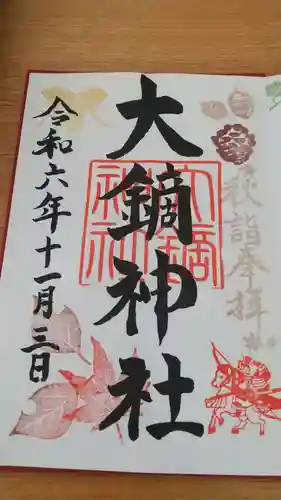 秋詣奉拝
大鏑神社
大鏑神社
令和六年十一月三日